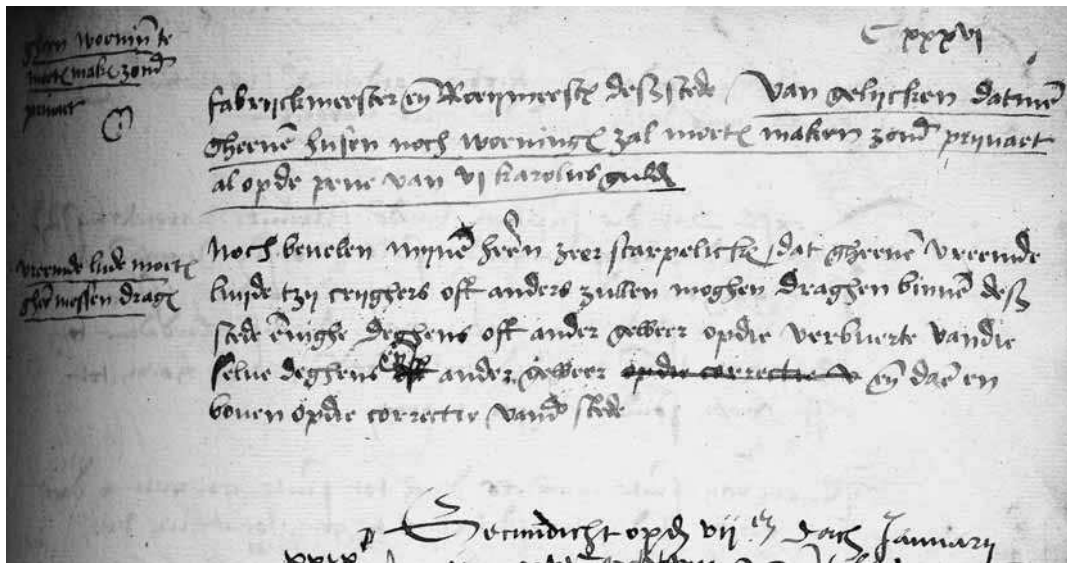 C xxxvi
gheen woeninḡ te
moetē makē zond̄
privaet
fabrijckmeester en̄ Roeijmeestē deszstede Van gelijcken datmē
gheenē husen noch woeningē zal moetē maken zond̄ prijvaet
al opde pene van vi karolus guldē
vreemde lude moetē
ghē messen dragē
Noch bevelen mijnē heren zeer scarpelicke dat gheenē vreemde
luijde tzij crijghers oft anders zullen moghen draghen binnē desz
stede ēnighe deghens oft ander geweer opdie verbuerte vandie
selue deghens en̄ ander geweer opdie correctie en̄ daē en
bouen opdie correctie vand̄ stede
Gecundicht opdē vij en dach Januarij
xxix